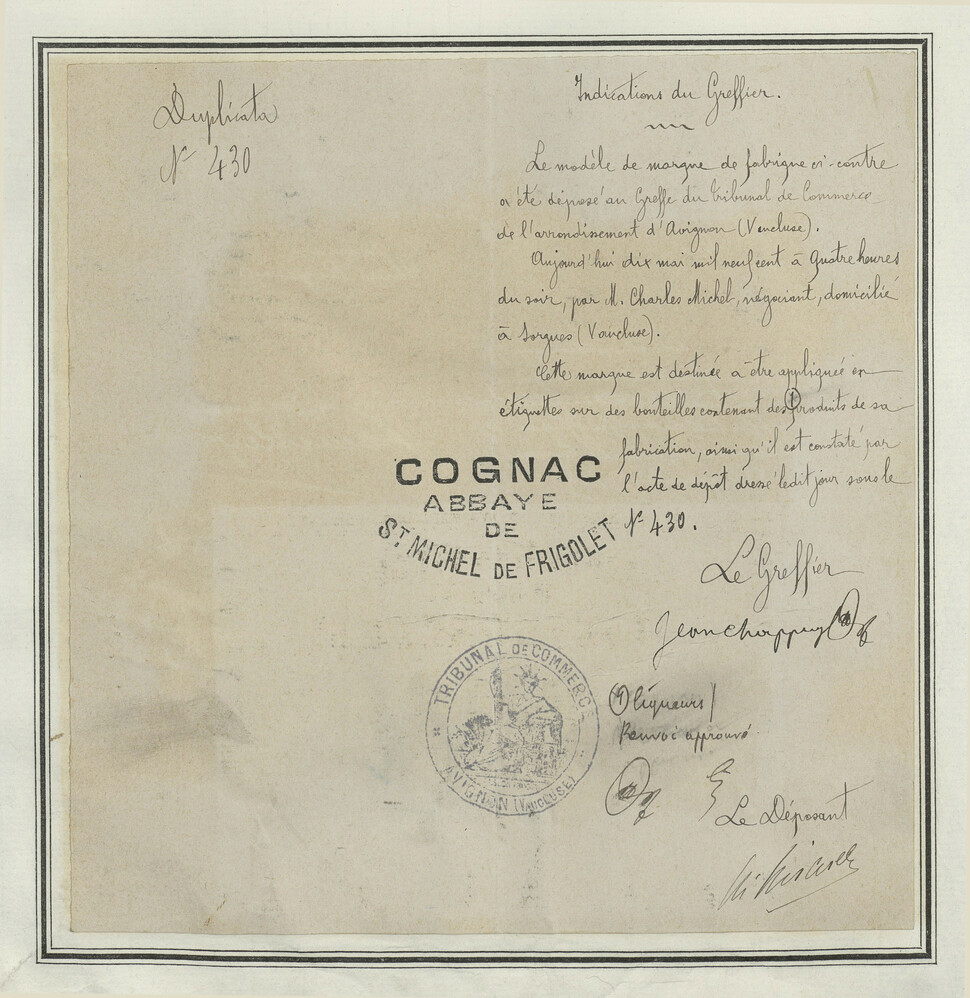 Duplicata
N° 430
Indications du Greffier.
Le modèle de marque de fabrique ci-contre
a été déposé au Greffe du Tribunal de Commerce
de l'arrondissement d'Avignon (Vaucluse).
Aujourd'hui dix mai mil neuf cent à quatre heures
du soir, par M. Charles Michel, négociant, domicilié
à Sorgues (Vaucluse).
Cette marque est destinée à être appliquée en
étiquettes sur des bouteilles contenant des (1) produits de sa
fabrication, ainsi qu'il est constaté par
l'acte de dépôt dressé ledit jour sous le
N° 430.
COGNAC
ABBAYE
DE
ST MICHEL DE FRIGOLET
Le Greffier
Jean Chappuy
TRIBUNAL DE COMMERCE
AVIGNON (VAUCLUSE)
(1) liqueurs /
Renvoi approuvé
Le Déposant